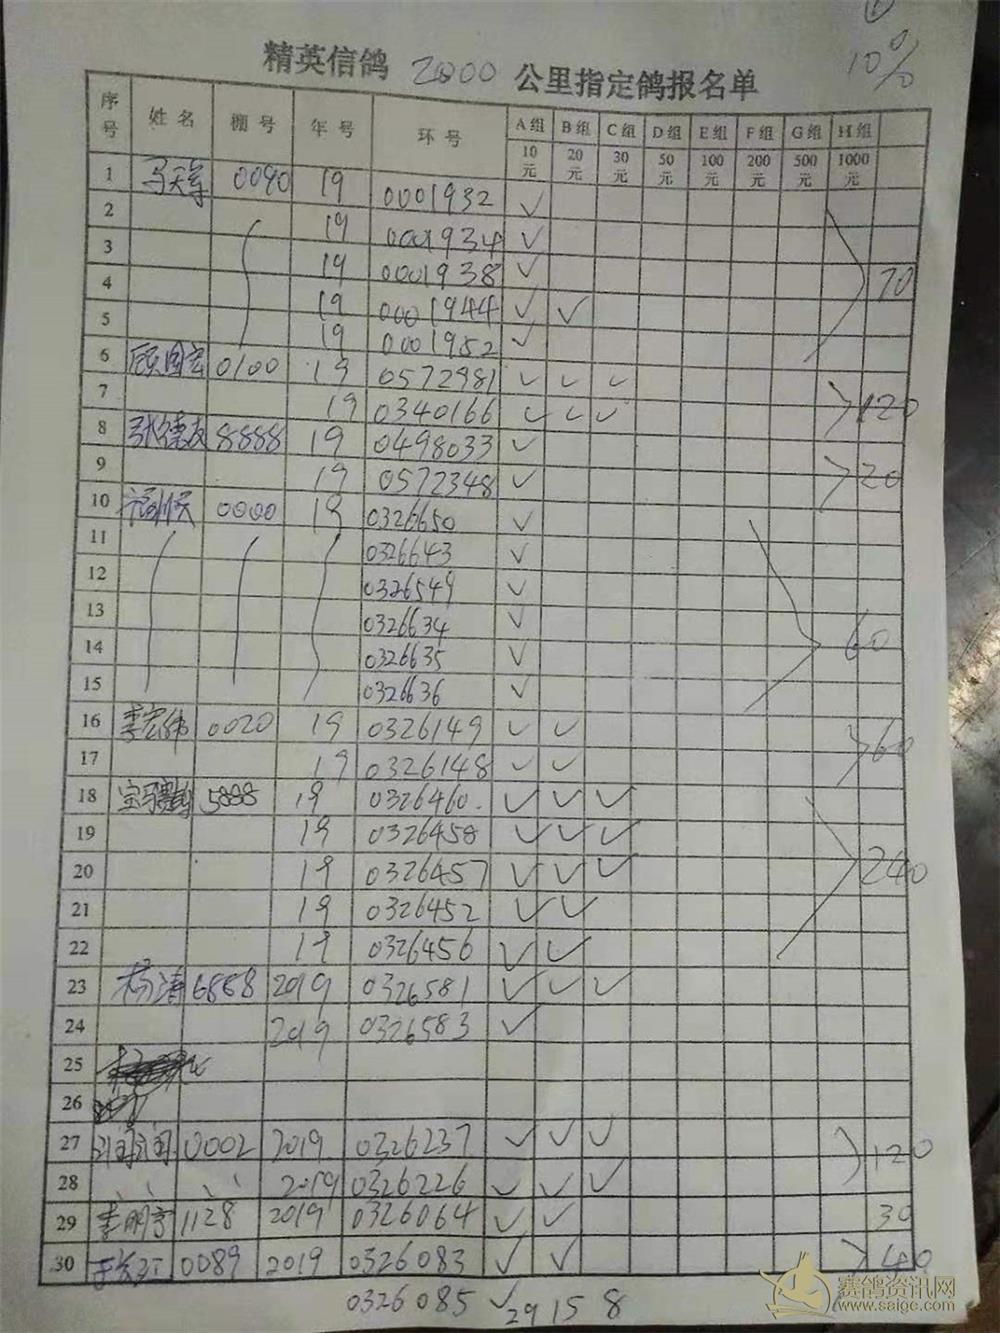 10%
精英信鸽 2000 公里指定鸽报名单
序号 姓名 棚号 年号 环号 A组 B组 C组 D组 E组 F组 G组 H组
10元 20元 30元 50元 100元 200元 500元 1000元
1 0090 19 0001932 ✓
2 19 0001934 ✓
3 19 0001938 ✓ 70
4 19 0001944 ✓ ✓
5 19 0001952 ✓
6 顾国宏 0100 19 0572981 ✓ ✓ ✓
7 19 0340166 ✓ ✓ ✓ 120
8 张德友 8888 19 0498033 ✓
9 19 0572348 ✓ 20
10 0000 19 0326650 ✓
11 0326643 ✓
12 0326549 ✓
13 0326634 ✓
14 0326635 ✓ 60
15 0326636 ✓
16 李宏伟 0020 19 0326149 ✓ ✓
17 19 0326148 ✓ ✓ 60
18 5888 19 0326460 ✓ ✓ ✓
19 19 0326458 ✓ ✓ ✓
20 19 0326457 ✓ ✓ ✓ 240
21 19 0326452 ✓ ✓
22 19 0326456 ✓ ✓
23 杨涛 6858 2019 0326581 ✓ ✓ ✓
24 2019 0326583 ✓
25
26
27 0002 2019 0326237 ✓ ✓ ✓
28 2019 0326226 ✓ ✓ ✓ 120
29 李明亮 1128 2019 0326064 ✓ ✓ 30
30 0089 2019 0326083 ✓ ✓ 40
0326085 ✓ 29 15 8
赛鸽资讯网
www.saigc.com